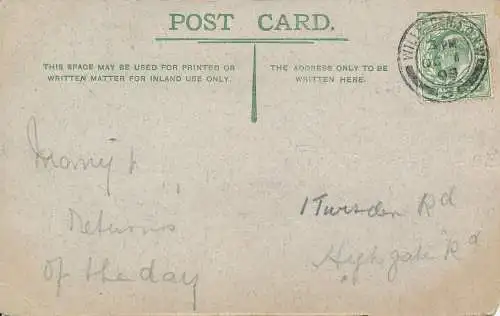 POST CARD.
THIS SPACE MAY BE USED FOR PRINTED OR
WRITTEN MATTER FOR INLAND USE ONLY.
THE ADDRESS ONLY TO BE
WRITTEN HERE.
PM
09
Many
Returns
of the day
1 Rd
Highgate Rd